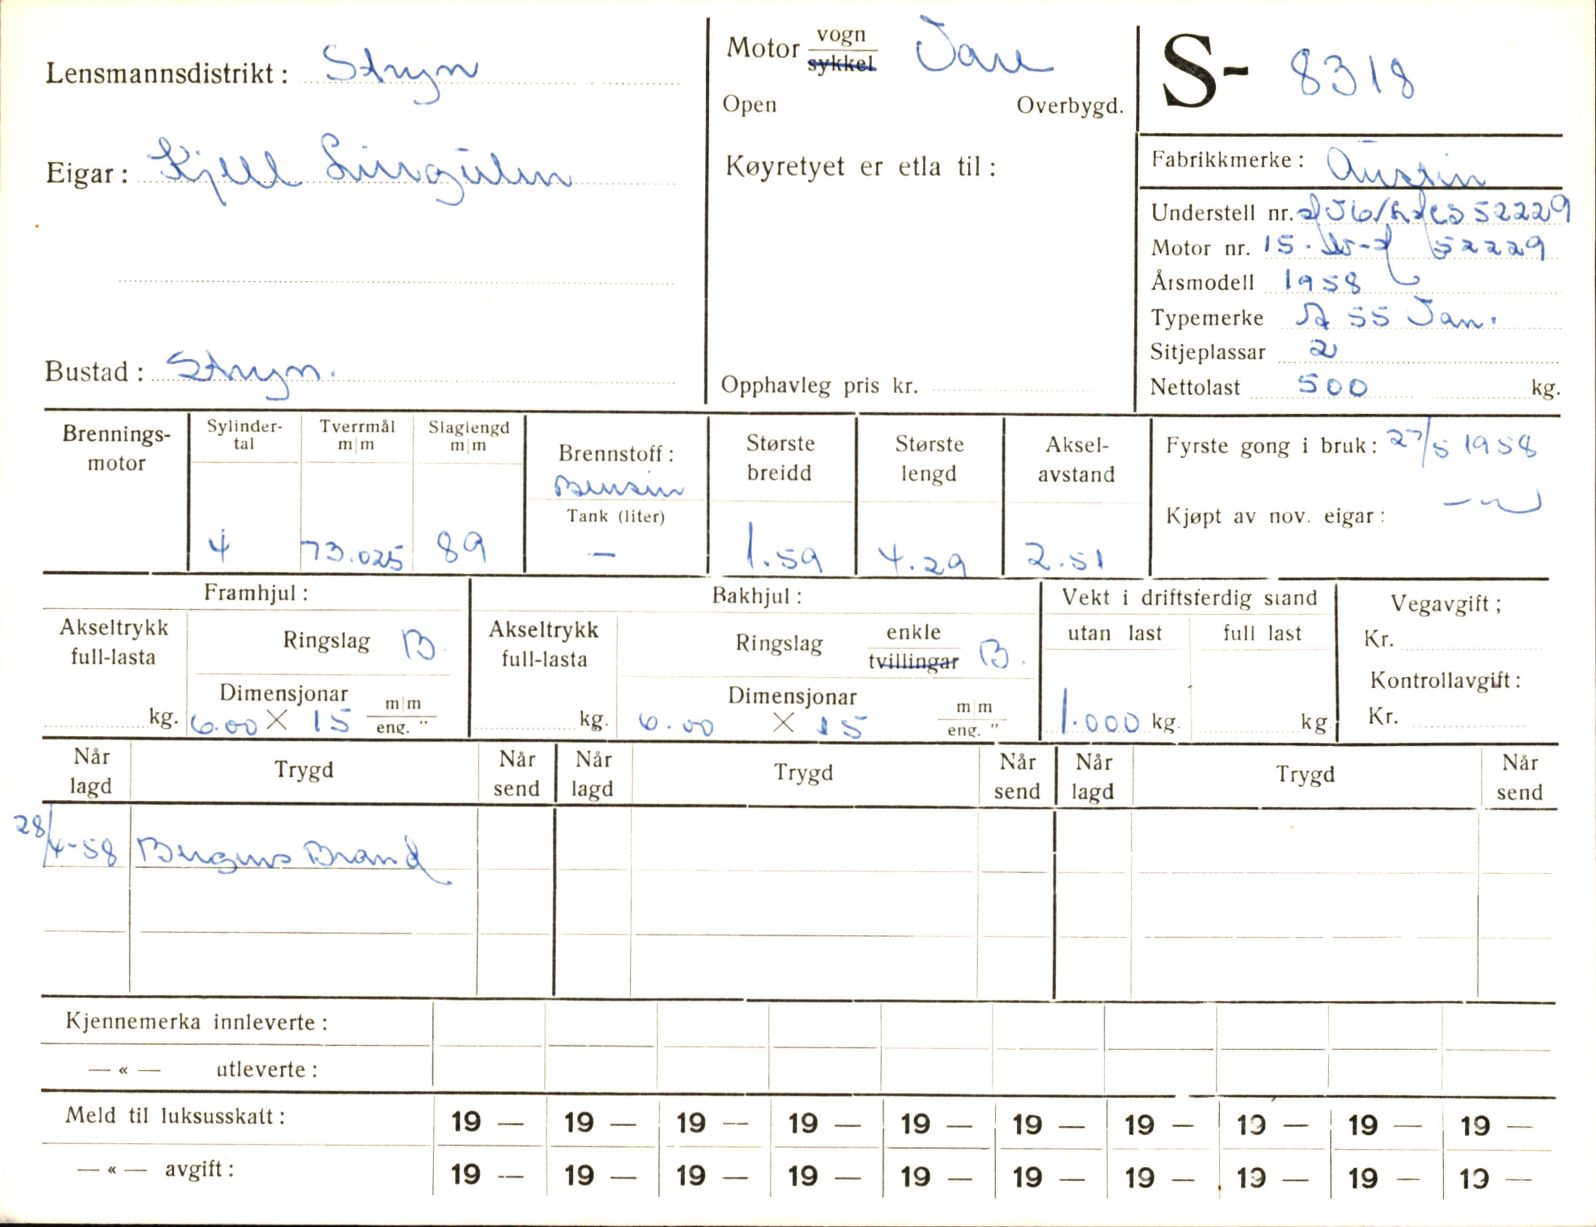 Lensmannsdistrikt: Stryn
Eigar: Kjell
Bustad: Stryn.
Motor vogn sykkel Vare
Open Overbygd.
Køyretyet er etla til:
Opphavleg pris kr.
S- 8318
Fabrikkmerke: Austin
Understell nr. 52229
Motor nr. 15. 52229
Årsmodell 1958
Typemerke A 55 Van.
Sitjeplassar 2
Nettolast 500 kg.
Brennings-
motor
Sylinder-
tal
4
Tverrmål
m|m
73.025
Slaglengd
m|m
89
Brennstoff:
Bensin
Tank (liter)
—
Største
breidd
1.59
Største
lengd
4.29
Aksel-
avstand
2.51
Fyrste gong i bruk: 27/5 1958
Kjøpt av nov. eigar:
Framhjul:
Akseltrykk
full-lasta
kg.
Ringslag B.
Dimensjonar
6.00 X 15 m|m eng. "
Bakhjul:
Akseltrykk
full-lasta
kg.
Ringslag enkle tvillingar B.
Dimensjonar
6.00 X 15 m|m eng. "
Vekt i driftsferdig stand
utan last full last
1.000 kg. kg.
Vegavgift;
Kr.
Kontrollavgift:
Kr.
Når lagd Trygd Når send Når lagd Trygd Når send Når lagd Trygd Når send
28/4-58 Bergens Brand
Kjennemerka innleverte:
— « — utleverte:
Meld til luksusskatt: 19 — 19 — 19 — 19 — 19 — 19 — 19 — 19 — 19 — 19 —
— « — avgift: 19 — 19 — 19 — 19 — 19 — 19 — 19 — 19 — 19 — 19 —